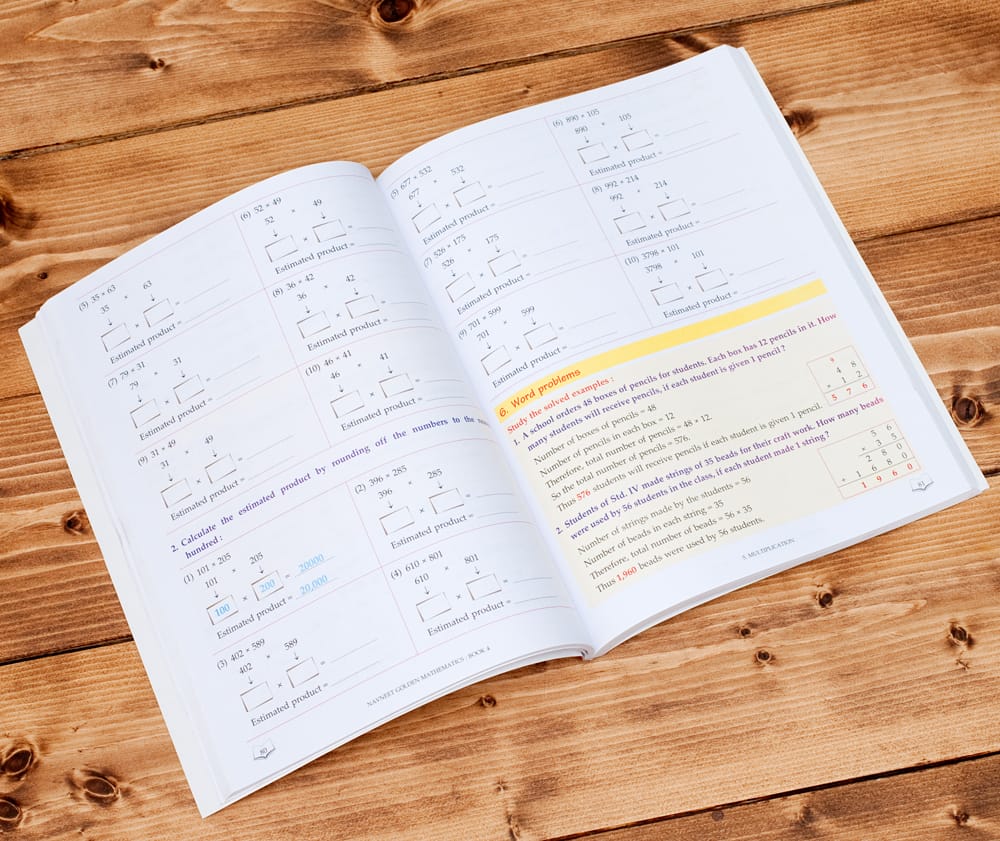 (5) 35 × 63
35 × 63
× =
Estimated product =
(6) 52 × 49
52 × 49
× =
Estimated product =
(7) 79 × 31
79 × 31
× =
Estimated product =
(8) 36 × 42
36 × 42
× =
Estimated product =
(9) 31 × 49
31 × 49
× =
Estimated product =
(10) 46 × 41
46 × 41
× =
Estimated product =
2. Calculate the estimated product by rounding off the numbers to the
hundred :
(1) 101 × 205
101 × 205
100 × 200 = 20000
Estimated product = 20,000
(2) 396 × 285
396 × 285
× =
Estimated product =
(3) 402 × 589
402 × 589
× =
Estimated product =
(4) 610 × 801
610 × 801
× =
Estimated product =
80
NAVNEET GOLDEN MATHEMATICS : BOOK 4
(5) 677 × 532
677 × 532
× =
Estimated product =
(6) 890 × 105
890 × 105
× =
Estimated product =
(7) 526 × 175
526 × 175
× =
Estimated product =
(8) 992 × 214
992 × 214
× =
Estimated product =
(9) 701 × 599
701 × 599
× =
Estimated product =
(10) 3798 × 101
3798 × 101
× =
Estimated product =
6. Word problems
Study the solved examples :
1. A school orders 48 boxes of pencils for students. Each box has 12 pencils in it. How
many students will receive pencils, if each student is given 1 pencil ?
Number of boxes of pencils = 48
Number of pencils in each box = 12
Therefore, total number of pencils = 48 × 12.
So the total number of pencils = 576.
Thus 576 students will receive pencils if each student is given 1 pencil.
4 8
× 1 2
5 7 6
2. Students of Std. IV made strings of 35 beads for their craft work. How many beads
were used by 56 students in the class, if each student made 1 string ?
Number of strings made by the students = 56
Number of beads in each string = 35
Therefore, total number of beads = 56 × 35
Thus 1,960 beads were used by 56 students.
5 6
× 3 5
2 8 0
+ 1 6 8 0
1 9 6 0
5. MULTIPLICATION
81